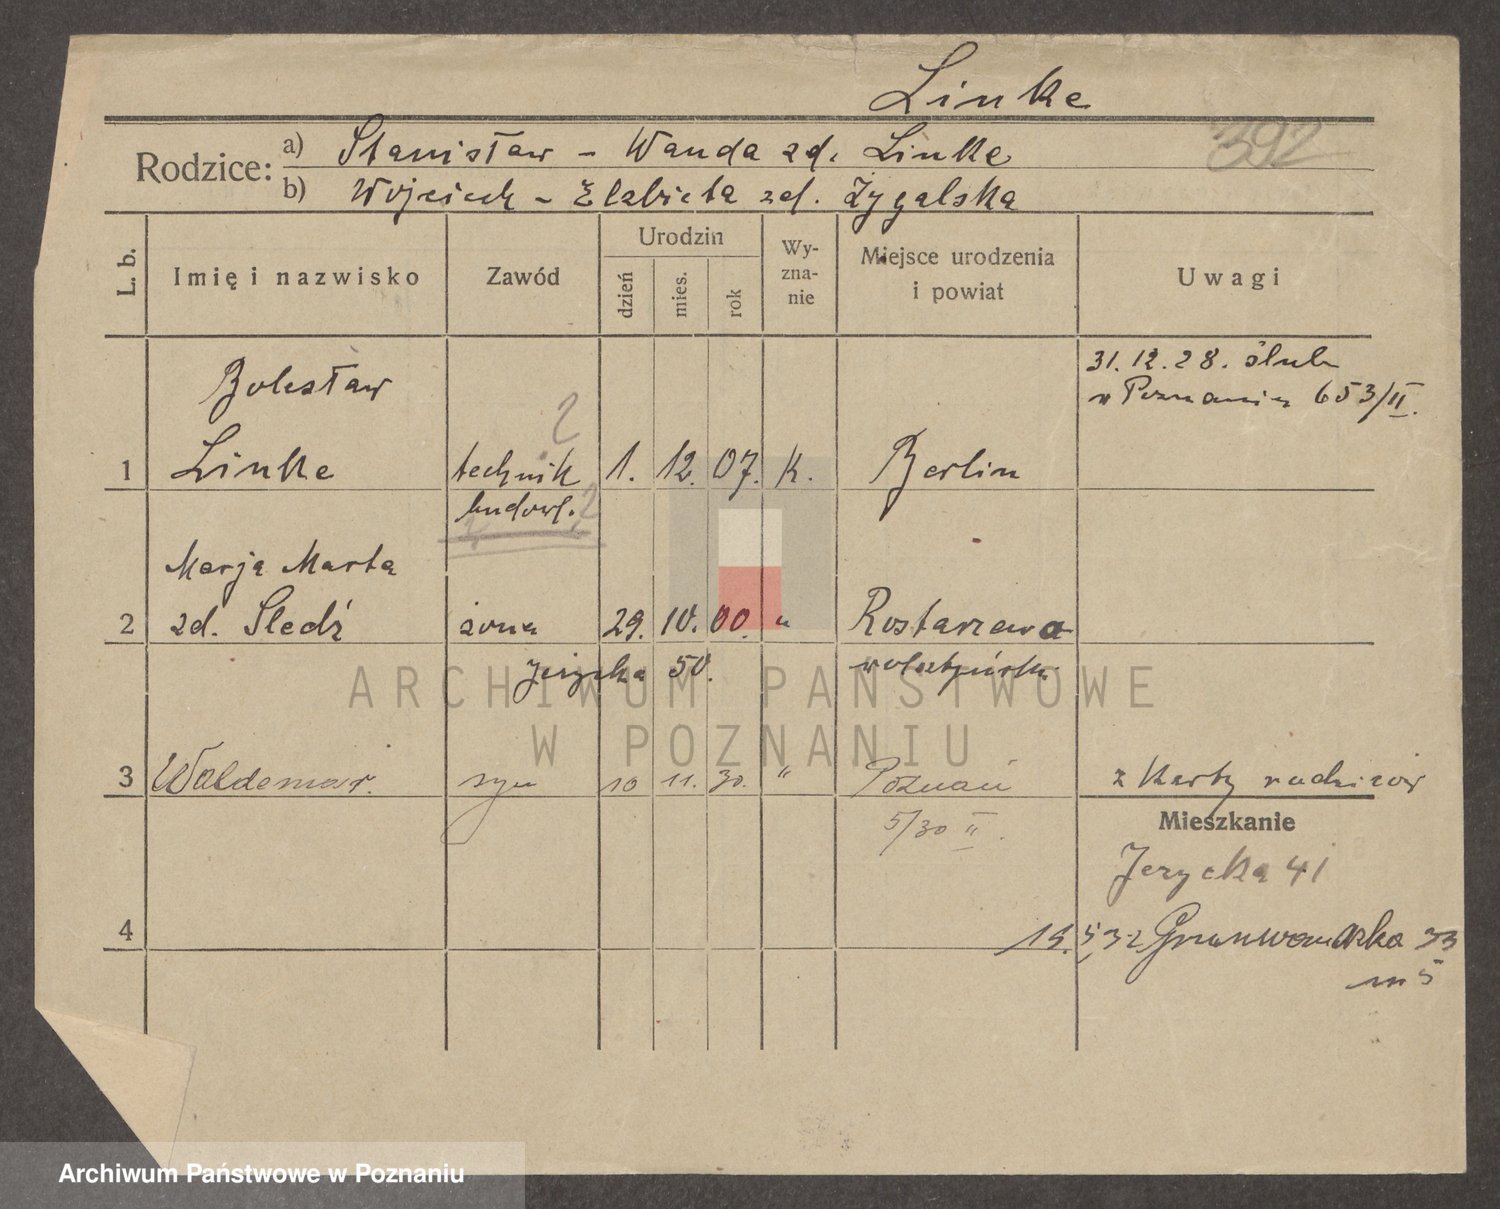 Linke
392
Rodzice: a) Stanisław – Wanda zd. Linke
b) Wojciech – Elżbieta zd. Żygalska
L. b.
Imię i nazwisko
Zawód
Urodzin
dzień
mies.
rok
Wy-
zna-
nie
Miejsce urodzenia
i powiat
Uwagi
31.12.28. ślub
w Poznaniu 653/II.
Bolesław
1 Linke technik 1. 12. 07. K. Berlin
budowl.
Marja Marta
2 zd. Śledź żona 29. 10. 00. " Rostarzewo
Jeżycka 50. wolsztyński
3 Waldemar. syn 10 11. 30. " Poznań z Karty rodziców
5/30 II.
Mieszkanie
Jeżycka 41
4
19.5.32 Grunwaldzka 33
m 5
ARCHIWUM PAŃSTWOWE
W POZNANIU
Archiwum Państwowe w Poznaniu